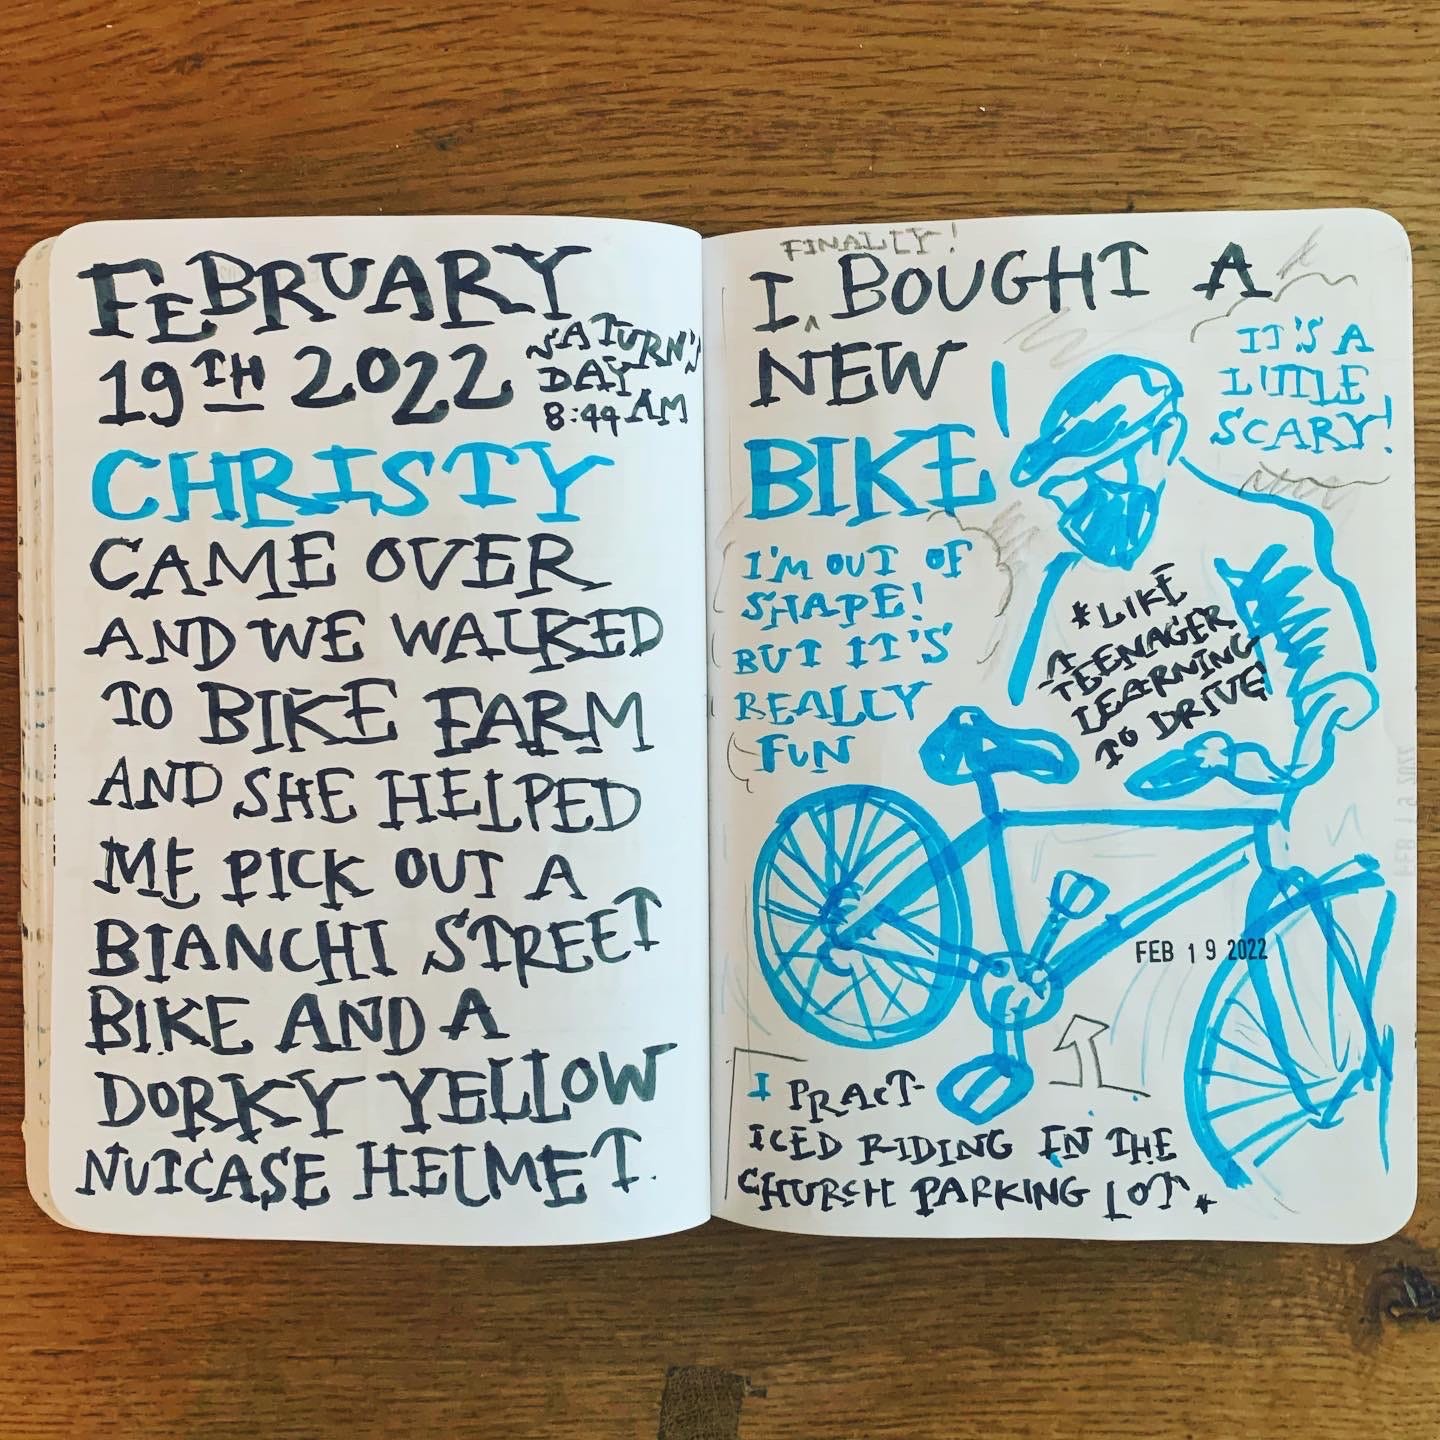 FEBRUARY
19TH 2022
SATURN'S
DAY
8:44 AM
CHRISTY
CAME OVER
AND WE WALKED
TO BIKE FARM
AND SHE HELPED
ME PICK OUT A
BIANCHI STREET
BIKE AND A
DORKY YELLOW
NUTCASE HELMET.
FINALLY!
I ^ BOUGHT A
NEW
BIKE
IT'S A
LITTLE
SCARY!
I'M OUT OF
SHAPE!
BUT IT'S
REALLY
FUN
*LIKE
A
TEENAGER
LEARNING
TO DRIVE
FEB 19 2022
I PRACT-
ICED RIDING IN THE
CHURCH PARKING LOT.*
FEB 19 2022